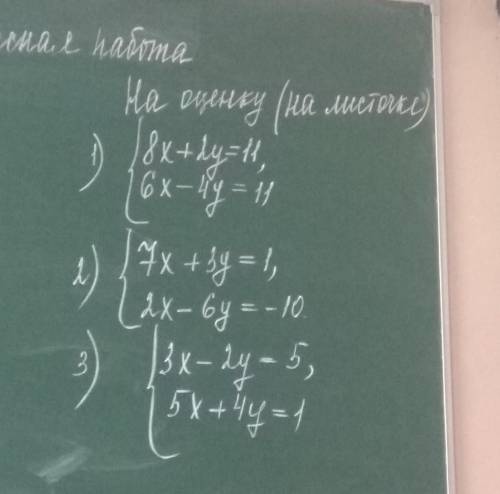 работа
На оценку (на листочке)
1) { 8x+2y=11,
6x-4y=11
2) { 7x+3y=1,
2x-6y=-10.
3) { 3x-2y=5,
5x+4y=1